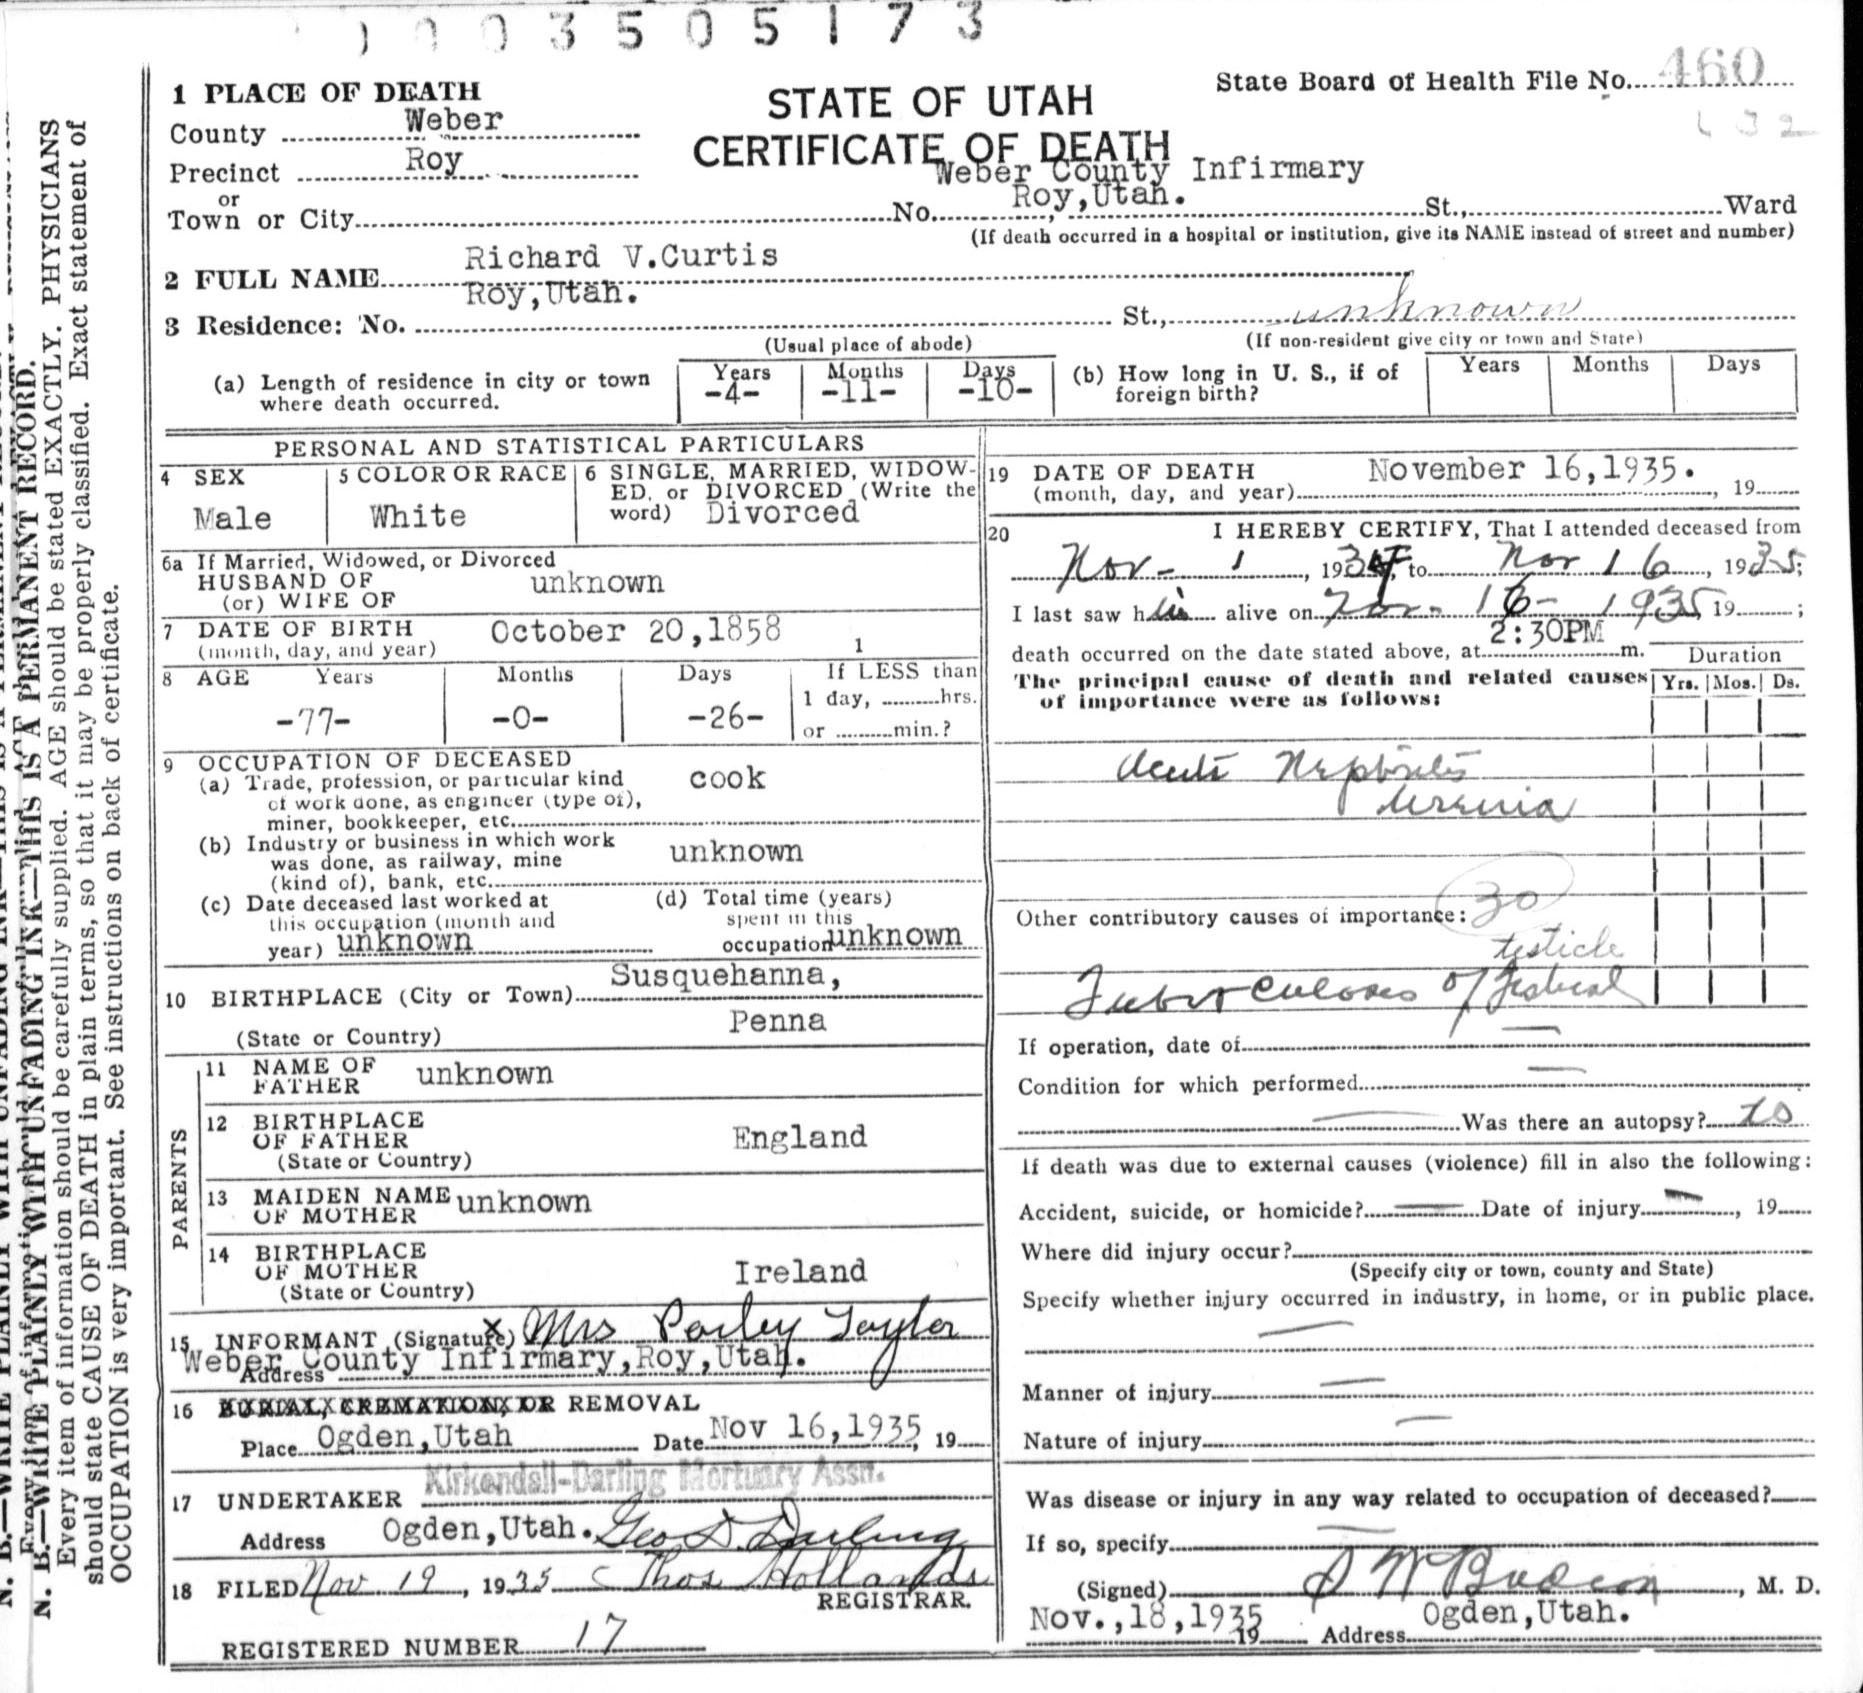 1003505173
State Board of Health File No. 460
132
STATE OF UTAH
CERTIFICATE OF DEATH
1 PLACE OF DEATH
County Weber
Precinct Roy
or
Town or City No. St., Ward
Weber County Infirmary
Roy,Utah.
(If death occurred in a hospital or institution, give its NAME instead of street and number)
2 FULL NAME Richard V.Curtis
Roy,Utah.
3 Residence: No. St., unknown
(Usual place of abode) (If non-resident give city or town and State)
(a) Length of residence in city or town where death occurred. Years -4- Months -11- Days -10-
(b) How long in U. S., if of foreign birth? Years Months Days
PERSONAL AND STATISTICAL PARTICULARS
4 SEX Male
5 COLOR OR RACE White
6 SINGLE, MARRIED, WIDOW-
ED, or DIVORCED (Write the
word) Divorced
6a If Married, Widowed, or Divorced
HUSBAND OF unknown
(or) WIFE OF
7 DATE OF BIRTH October 20,1858
(month, day, and year) 1
8 AGE Years Months Days If LESS than
-77- -0- -26- 1 day, hrs.
or min.?
9 OCCUPATION OF DECEASED
(a) Trade, profession, or particular kind cook
of work done, as engineer (type of),
miner, bookkeeper, etc.
(b) Industry or business in which work
was done, as railway, mine unknown
(kind of), bank, etc.
(c) Date deceased last worked at
this occupation (month and
year) unknown
(d) Total time (years)
spent in this
occupation unknown
10 BIRTHPLACE (City or Town) Susquehanna,
Penna
(State or Country)
PARENTS
11 NAME OF
FATHER unknown
12 BIRTHPLACE
OF FATHER England
(State or Country)
13 MAIDEN NAME
OF MOTHER unknown
14 BIRTHPLACE
OF MOTHER Ireland
(State or Country)
15 INFORMANT (Signature) x Mrs Parley Taylor
Weber County Infirmary,Roy,Utah.
Address
16 BURIAL, CREMATION, OR REMOVAL
Place Ogden,Utah Date Nov 16,1935, 19
Kirkendall-Darling Mortuary Assn.
17 UNDERTAKER
Address Ogden,Utah. Geo D. Darling
18 FILED Nov 19, 1935 Thos Hollands
REGISTRAR.
REGISTERED NUMBER 17
19 DATE OF DEATH November 16,1935.
(month, day, and year) , 19
20 I HEREBY CERTIFY, That I attended deceased from
Nov- 1, 1934, to Nov 16, 1935;
I last saw him alive on Nov- 16- 1935, 19 ;
2:30PM
death occurred on the date stated above, at m.
Duration
The principal cause of death and related causes
of importance were as follows:
Yrs. Mos. Ds.
Acute Nephritis
Uremia
30
Other contributory causes of importance:
testicle
Tuberculoses of
If operation, date of —
Condition for which performed —
— Was there an autopsy? no
If death was due to external causes (violence) fill in also the following:
Accident, suicide, or homicide? — Date of injury —, 19
Where did injury occur?
(Specify city or town, county and State)
Specify whether injury occurred in industry, in home, or in public place.
—
Manner of injury —
Nature of injury —
Was disease or injury in any way related to occupation of deceased?
If so, specify —
(Signed) , M. D.
Nov.,18,1935 19 Address Ogden,Utah.
N. B.—WRITE PLAINLY WITH UNFADING INK—THIS IS A PERMANENT RECORD.
Every item of information should be carefully supplied. AGE should be stated EXACTLY. PHYSICIANS
should state CAUSE OF DEATH in plain terms, so that it may be properly classified. Exact statement of
OCCUPATION is very important. See instructions on back of certificate.